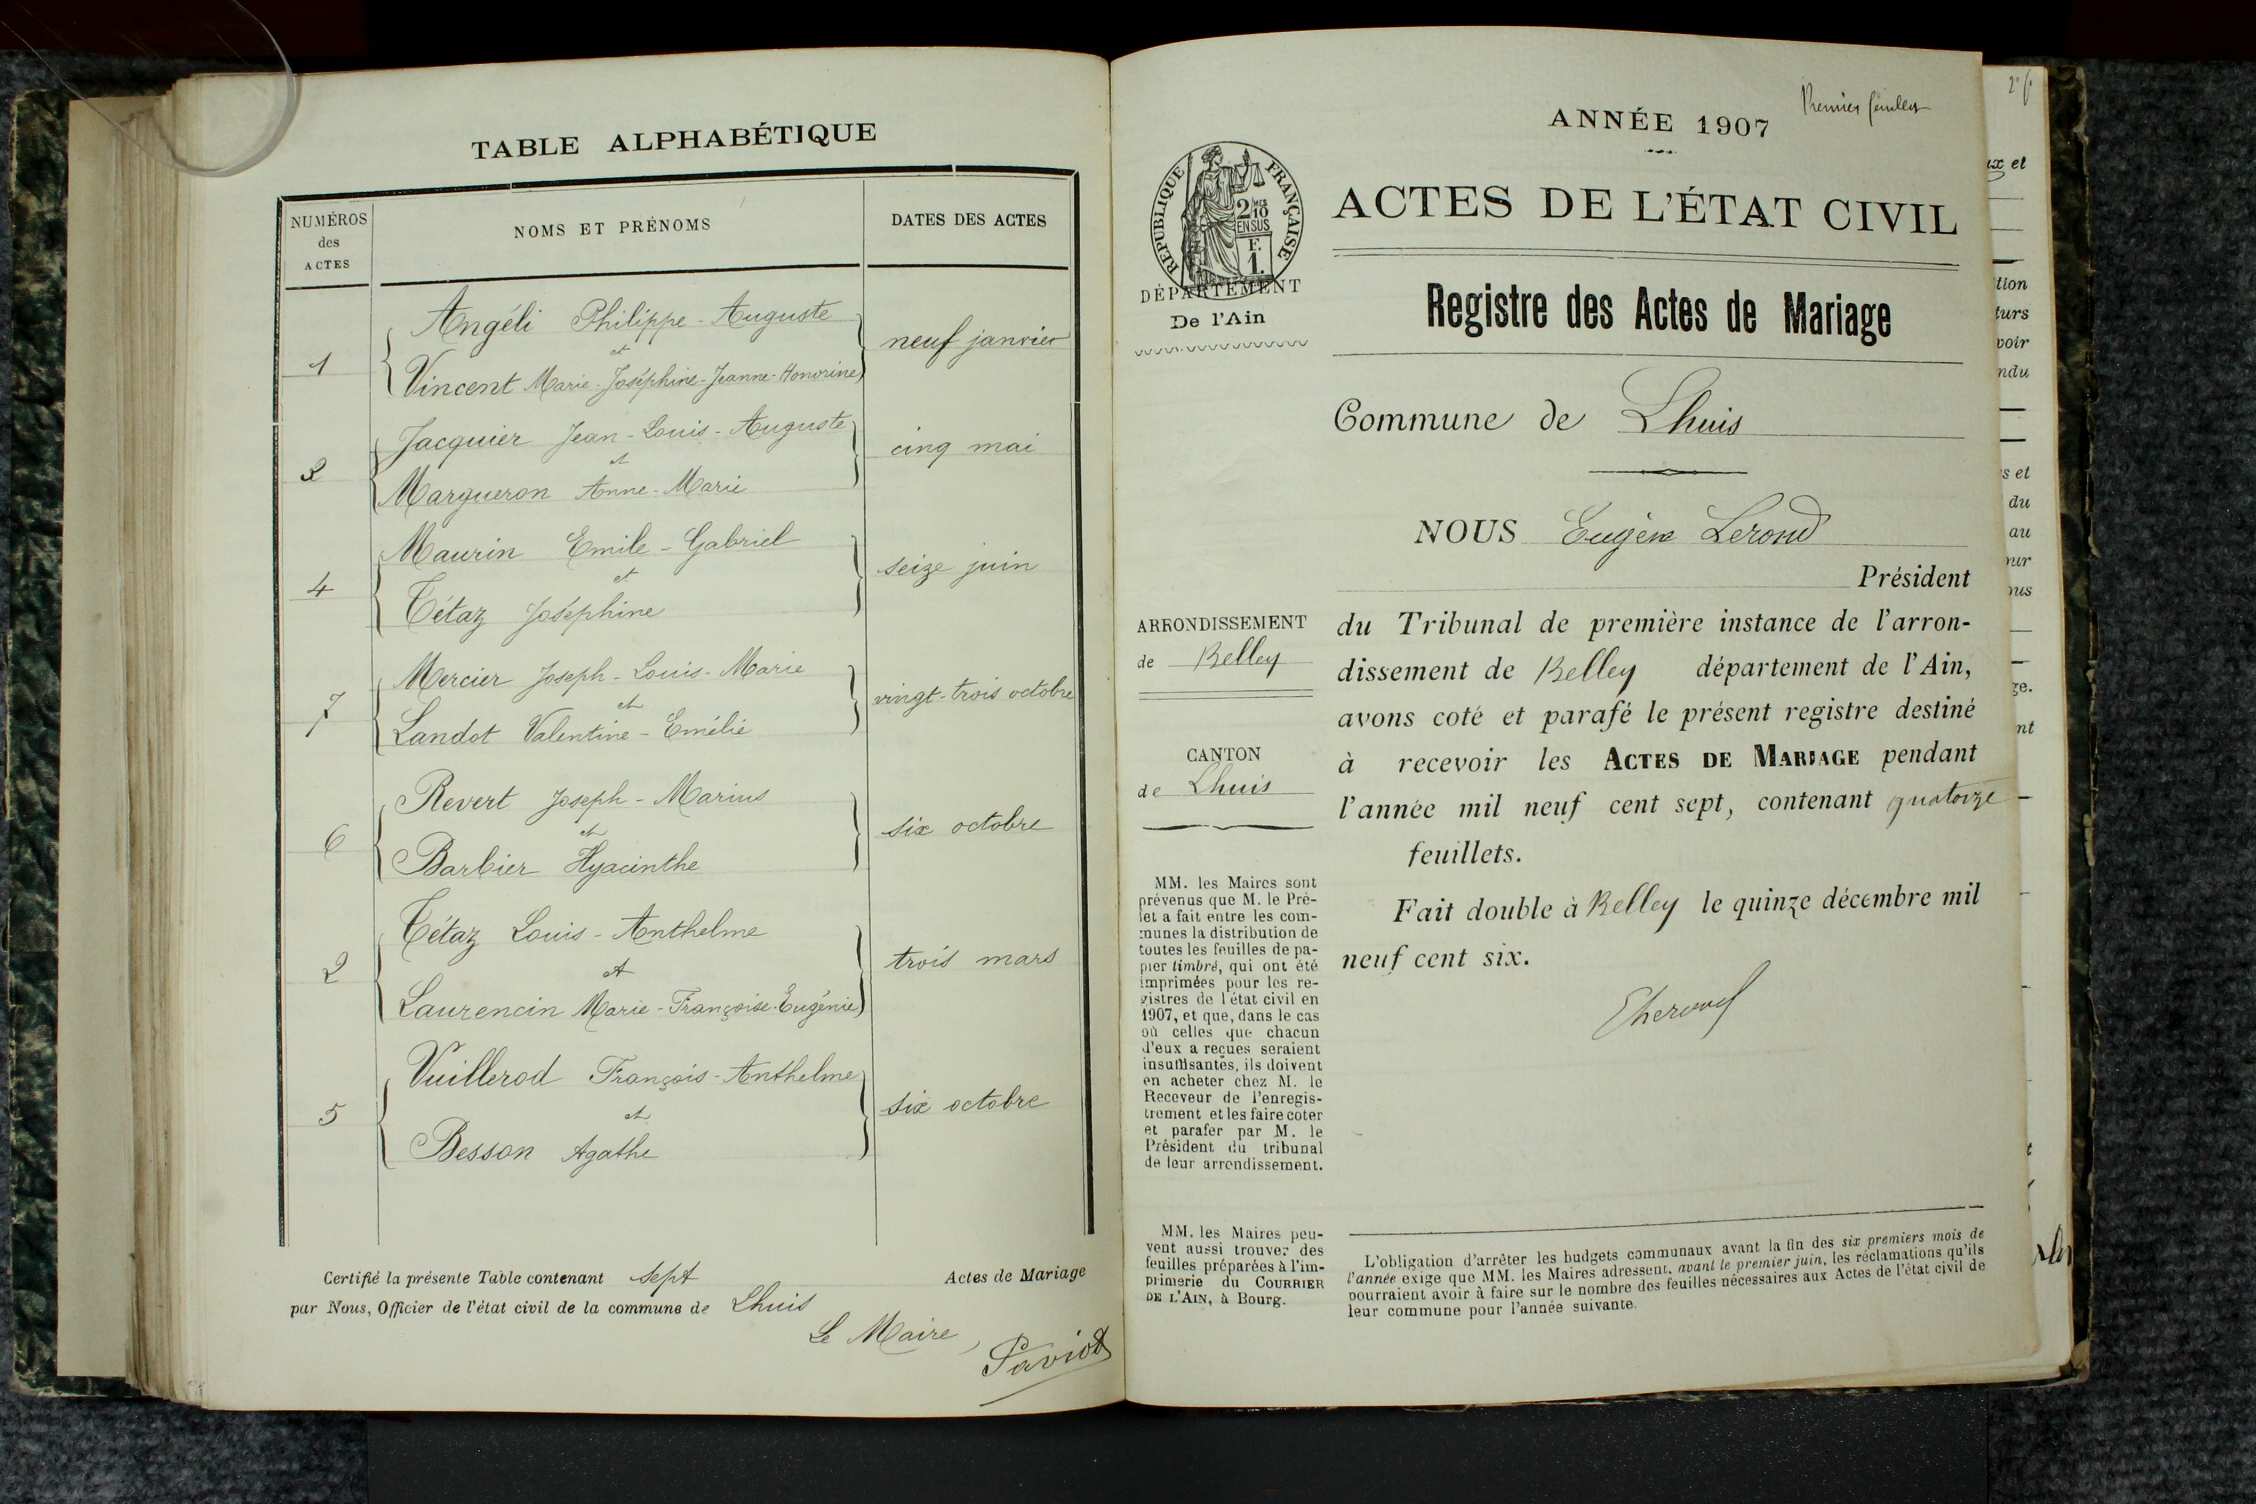 TABLE ALPHABÉTIQUE
NUMÉROS
des
ACTES
NOMS ET PRÉNOMS
DATES DES ACTES
Angéli Philippe-Auguste
1 et neuf janvier
Vincent Marie-Joséphine-Jeanne-Honorine
Jacquier Jean-Louis-Auguste
3 et cinq mai
Margueron Anne-Marie
Maurin Emile-Gabriel
4 et seize juin
Tétaz Joséphine
Mercier Joseph-Louis-Marie
7 et vingt-trois octobre
Landot Valentine-Emélie
Revert Joseph-Marius
6 et six octobre
Barbier Hyacinthe
Tétaz Louis-Anthelme
2 et trois mars
Laurencin Marie-Françoise-Eugénie
Vuillerod François-Anthelme
5 et six octobre
Besson Agathe
Certifié la présente Table contenant sept Actes de Mariage
par Nous, Officier de l'état civil de la commune de Lhuis
Le Maire,
Saviot
Premier feuillet
ANNÉE 1907
RÉPUBLIQUE FRANÇAISE
2/10
EN SUS
F.
1.
DÉPARTEMENT
De l'Ain
ACTES DE L'ÉTAT CIVIL
Registre des Actes de Mariage
Commune de Lhuis
NOUS Eugène Lerond
Président
du Tribunal de première instance de l'arron-
dissement de Belley département de l'Ain,
avons coté et parafé le présent registre destiné
à recevoir les ACTES DE MARIAGE pendant
l'année mil neuf cent sept, contenant quatorze
feuillets.
Fait double à Belley le quinze décembre mil
neuf cent six.
ARRONDISSEMENT
de Belley
CANTON
de Lhuis
MM. les Maires sont
prévenus que M. le Pré-
fet a fait entre les com-
munes la distribution de
toutes les feuilles de pa-
pier timbré, qui ont été
imprimées pour les re-
gistres de l'état civil en
1907, et que, dans le cas
où celles que chacun
d'eux a reçues seraient
insuffisantes, ils doivent
en acheter chez M. le
Receveur de l'enregis-
trement et les faire coter
et parafer par M. le
Président du tribunal
de leur arrondissement.
MM. les Maires peu-
vent aussi trouver des
feuilles préparées à l'im-
primerie du COURRIER
DE L'AIN, à Bourg.
L'obligation d'arrêter les budgets communaux avant la fin des six premiers mois de
l'année exige que MM. les Maires adressent, avant le premier juin, les réclamations qu'ils
pourraient avoir à faire sur le nombre des feuilles nécessaires aux Actes de l'état civil de
leur commune pour l'année suivante.